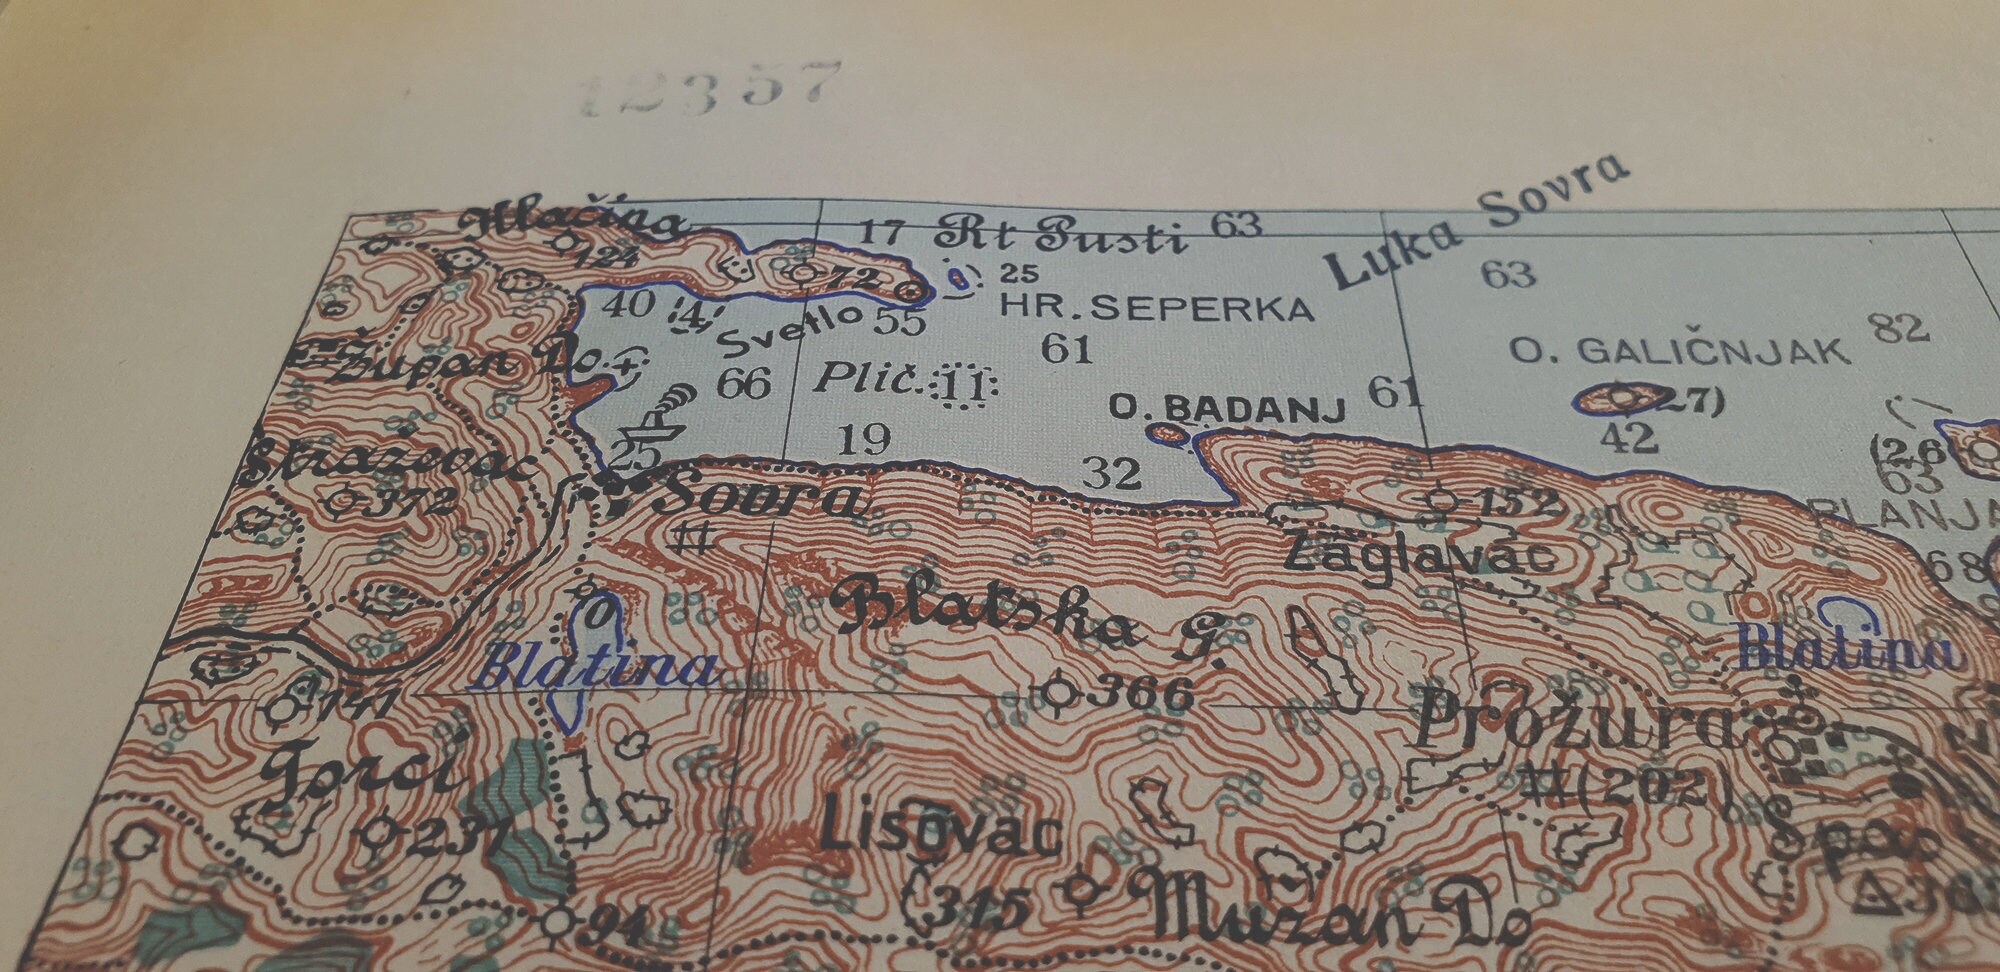 12357
Hlačina
124
72
17 Rt Pusti 63
Luka Sovra
25
HR. SEPERKA
63
40
4
Svetlo 55
61
O. GALIČNJAK 82
Župan Do
66
Plič. 11
O. BADANJ
61
27)
42
25
19
32
(26
63
Straževac
372
Sovra
152
PLANJA
68
Zaglavac
Blatska G.
366
0
Blatina
Blatina
141
Gorci
237
Prožura
(202)
Lisovac
315
Muzan Do
Spas
94